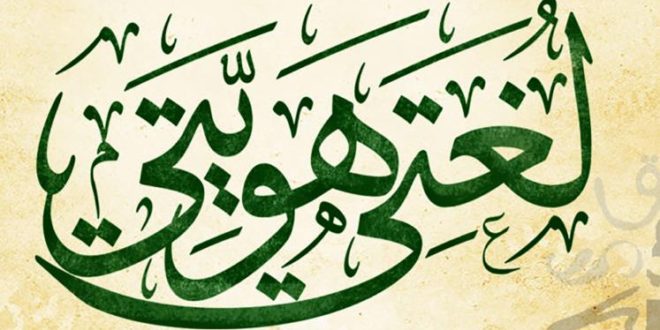 لُغَتِي هُوِيَّتِي